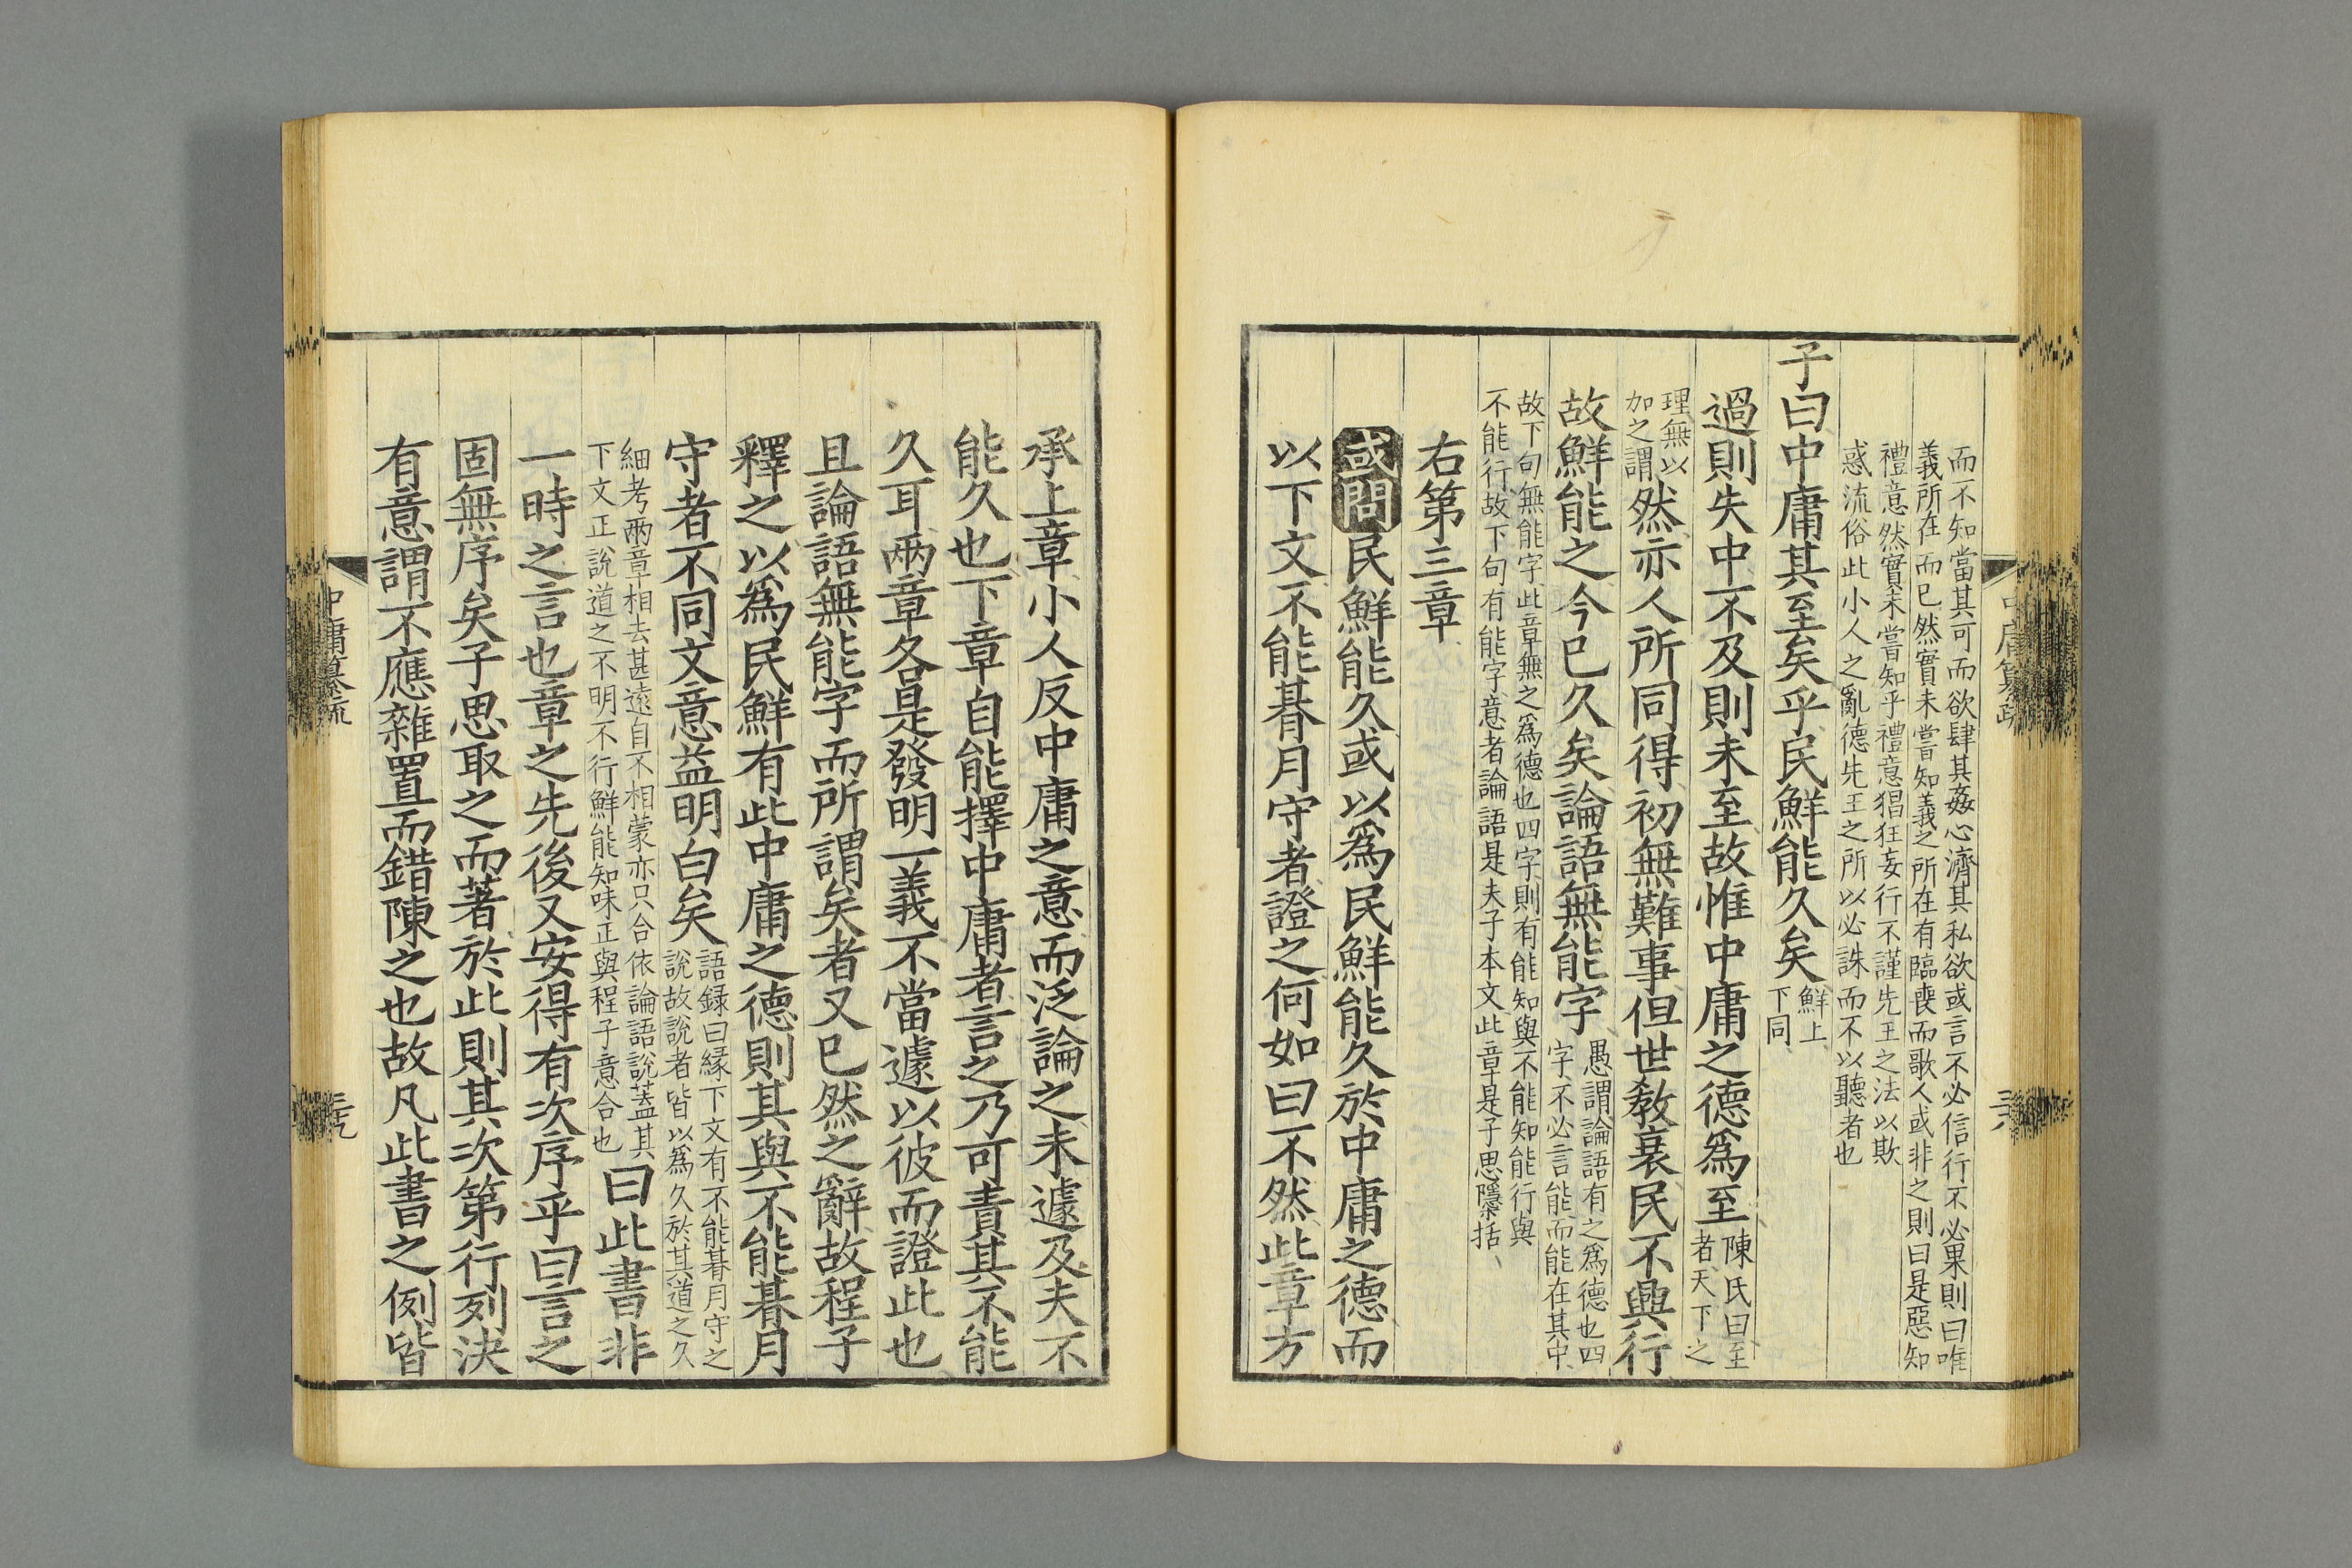 而不知當其可而欲肆其姦心濟其私欲或言不必信行不必果則曰唯
義所在而已然實未嘗知義之所在有臨喪而歌人或非之則曰是惡知
禮意然實未嘗知乎禮意猖狂妄行不謹先王之法以欺
惑流俗此小人之亂德先王之所以必誅而不以聽者也
子曰中庸其至矣乎民鮮能久矣鮮上
下同
過則失中不及則未至故惟中庸之德爲至陳氏曰至
者天下之
理無以
加之謂然亦人所同得初無難事但世教衰民不興行
故鮮能之今已久矣論語無能字愚謂論語有之爲德也四
字不必言能而能在其中
故下句無能字此章無之爲德也四字則有能知與不能知能行與
不能行故下句有能字意者論語是夫子本文此章是子思隱括
右第三章
或問民鮮能久或以爲民鮮能久於中庸之德而
以下文不能朞月守者證之何如曰不然此章方
承上章小人反中庸之意而泛論之未遽及夫不
能久也下章自能擇中庸者言之乃可責其不能
久耳兩章各是發明一義不當遽以彼而證此也
且論語無能字而所謂矣者又已然之辭故程子
釋之以爲民鮮有此中庸之德則其與不能朞月
守者不同文意益明白矣語録曰縁下文有不能朞月守之
說故說者皆以爲久於其道之久
細考兩章相去甚遠自不相蒙亦只合依論語說蓋其
下文正說道之不明不行鮮能知味正與程子意合也曰此書非
一時之言也章之先後又安得有次序乎曰言之
固無序矣子思取之而著於此則其次第行列決
有意謂不應雜置而錯陳之也故凡此書之例皆
中庸纂疏
三九